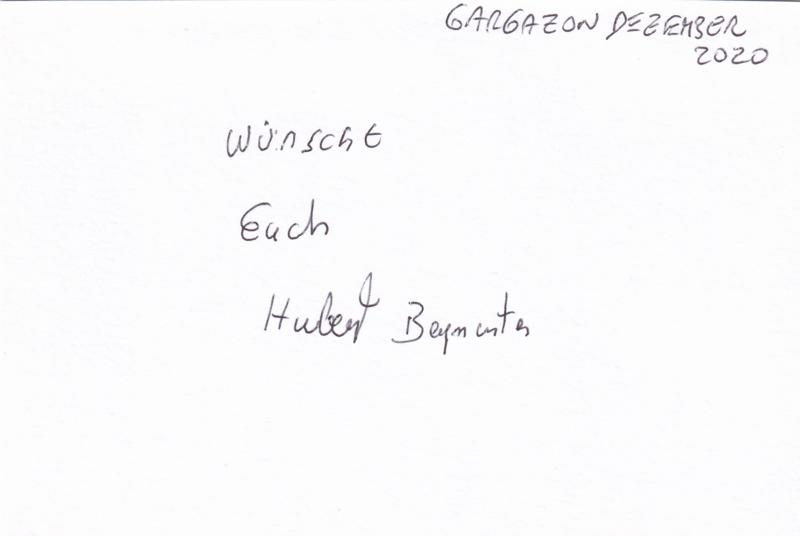 GARGAZON DEZEMBER
2020
WÜNSCHE
Euch
Hubert